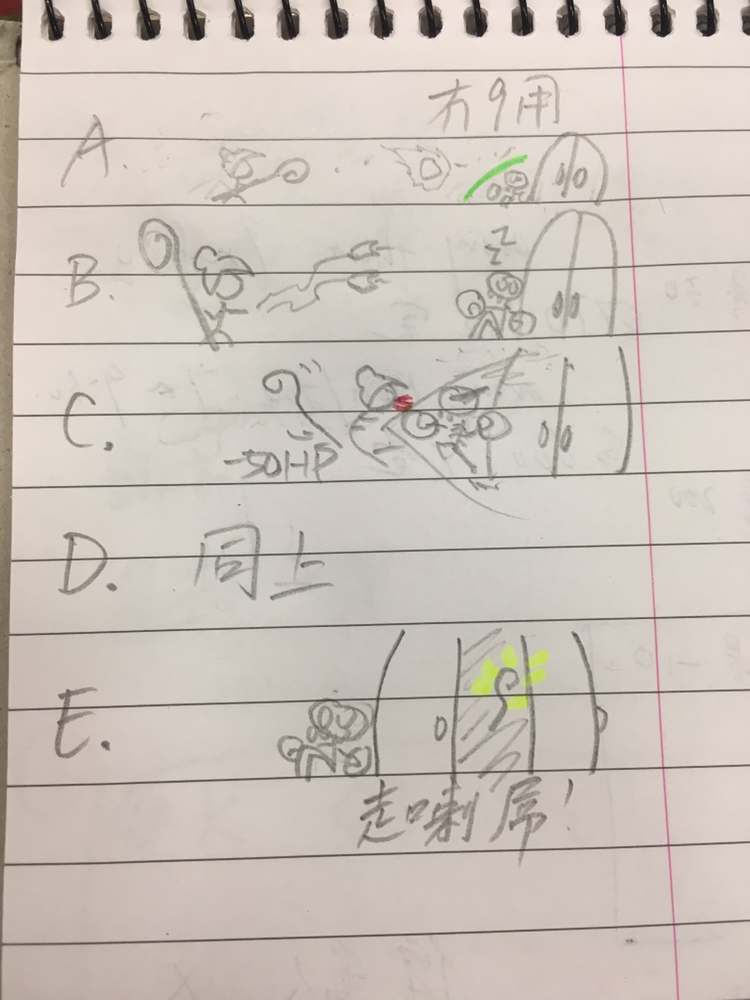 冇9用
A.
B.
z
z
C.
-50HP
D. 同上
E.
走喇屌!